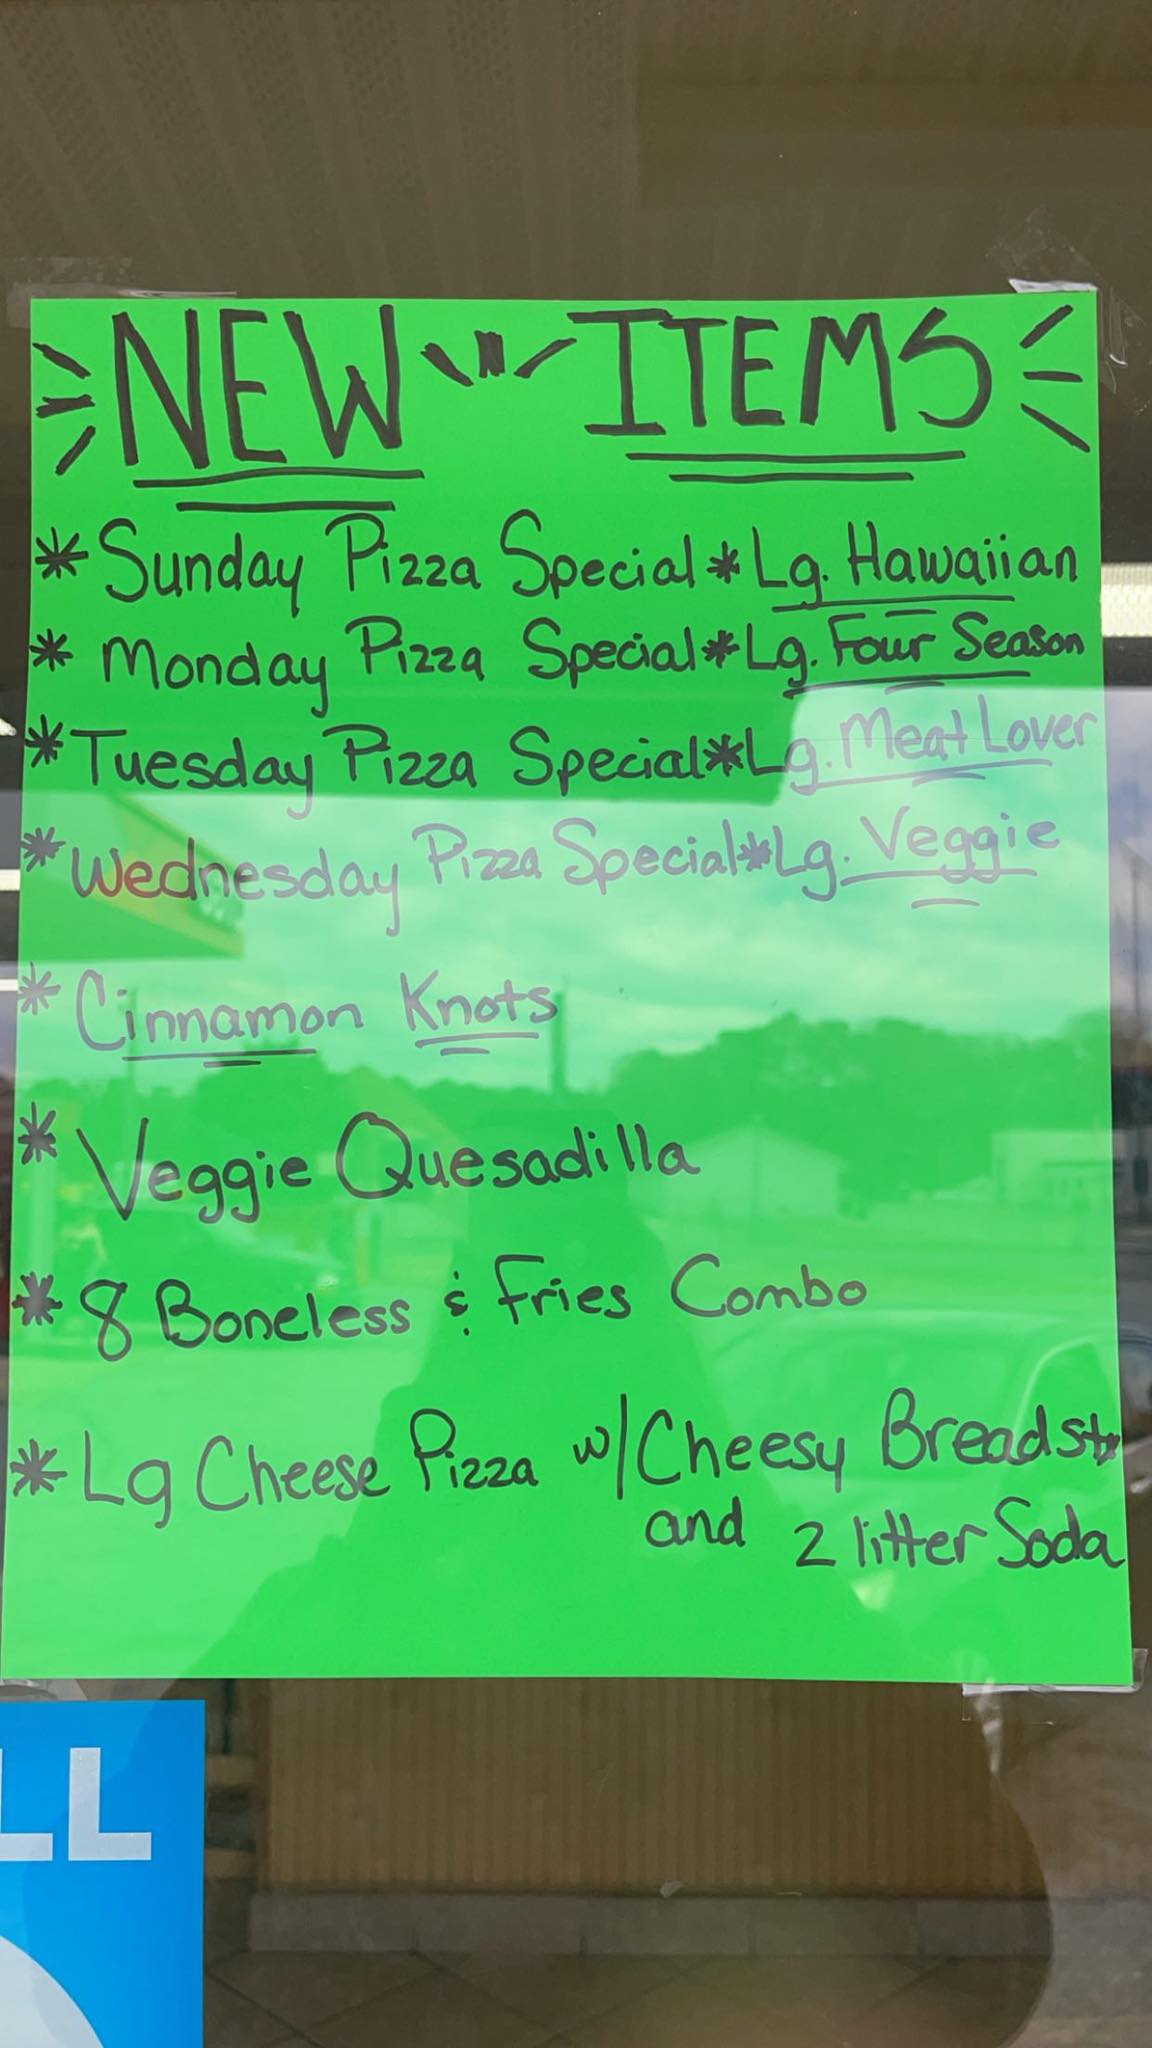 NEW ITEMS
* Sunday Pizza Special * Lg. Hawaiian
* Monday Pizza Special * Lg. Four Season
* Tuesday Pizza Special * Lg. Meat Lover
* Wednesday Pizza Special * Lg. Veggie
* Cinnamon Knots
* Veggie Quesadilla
* 8 Boneless & Fries Combo
* Lg Cheese Pizza w/ Cheesy Breadstx
and 2 litter Soda
LL